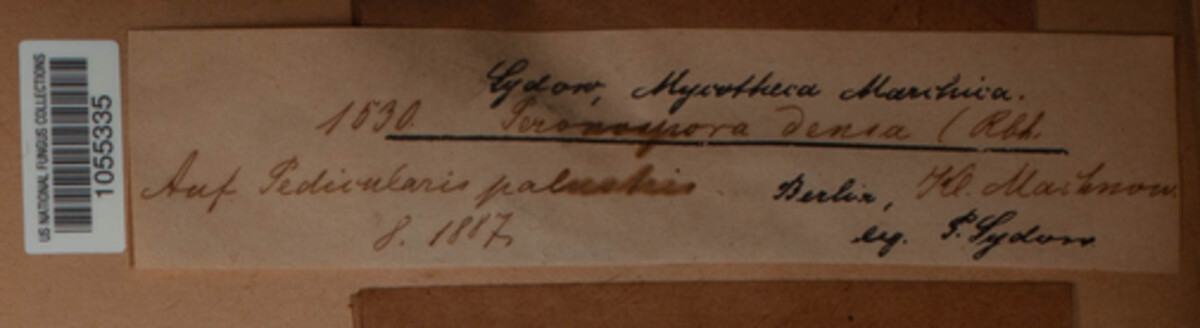 US NATIONAL FUNGUS COLLECTIONS
1055335
Sydow, Mycotheca Marchica.
1530. Peronospora densa (Rbh.
Auf Pedicularis palustris. Berlin, Kl. Machnow.
8. 1887. leg. P. Sydow